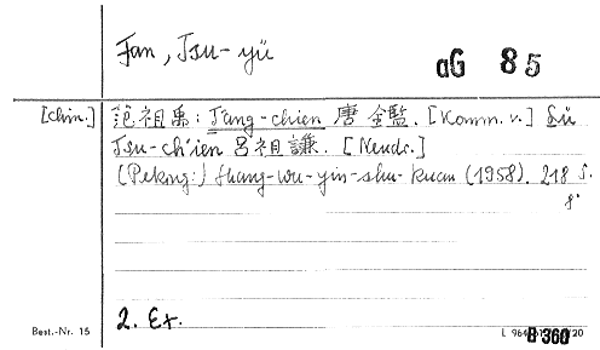 Fan, Tsu-yü
aG 85
[chin.] 范祖禹: T'ang-chien 唐鑑. [Komm. v.] Lü
Tsu-ch'ien 吕祖謙. [Neudr.]
(Peking:) Shang-wu-yin-shu-kuan (1958). 218 S.
8°
2. Ex.
Best.-Nr. 15
B 360